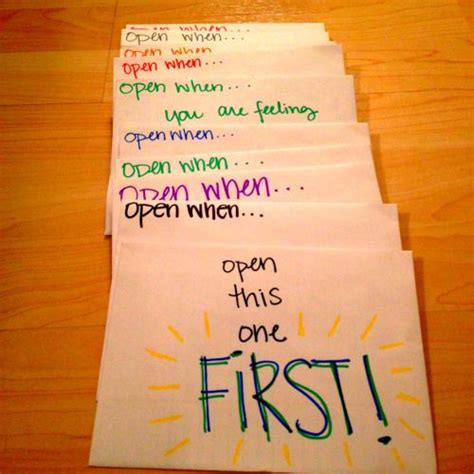 open when...
open when...
open when...
open when...
you are feeling
open when...
open when...
open when...
open when...
open
this
one
FIRST!